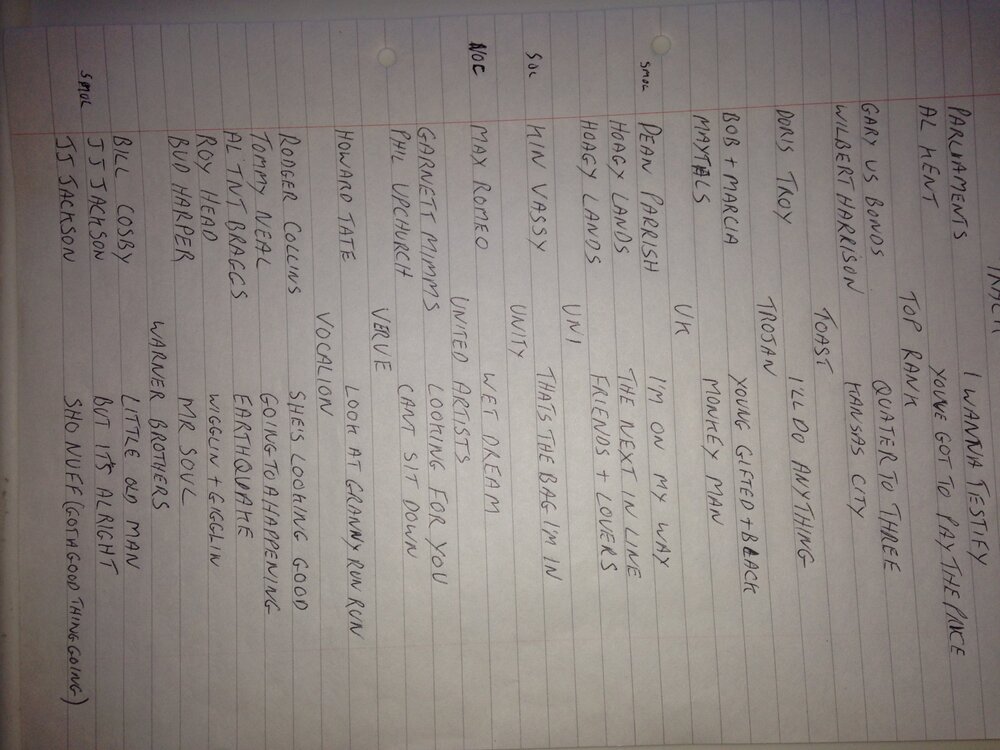 TRACK
PARLIAMENTS I WANNA TESTIFY
AL KENT YOUVE GOT TO PAY THE PRICE
TOP RANK
GARY US BONDS QUATER TO THREE
WILBERT HARRISON KANSAS CITY
TOAST
DORIS TROY I'LL DO ANYTHING
TROJAN
BOB + MARCIA YOUNG GIFTED + BLACK
MAYTALS MONKEY MAN
UK
SMOL DEAN PARRISH I'M ON MY WAY
HOAGY LANDS THE NEXT IN LINE
HOAGY LANDS FRIENDS + LOVERS
UNI
SOL KIN VASSY THATS THE BAG I'M IN
UNITY
NOC MAX ROMEO WET DREAM
UNITED ARTISTS
GARNETT MIMMS LOOKING FOR YOU
PHIL UPCHURCH CANT SIT DOWN
VERVE
HOWARD TATE LOOK AT GRANNY RUN RUN
VOCALION
RODGER COLLINS SHE'S LOOKING GOOD
TOMMY NEAL GOING TO A HAPPENING
AL TNT BRAGGS EARTHQUAKE
ROY HEAD WIGGLIN + GIGGLIN
BUD HARPER MR SOUL
WARNER BROTHERS
BILL COSBY LITTLE OLD MAN
JJ JACKSON BUT ITS ALRIGHT
SMOL JJ JACKSON SHO NUFF (GOT A GOOD THING GOING)